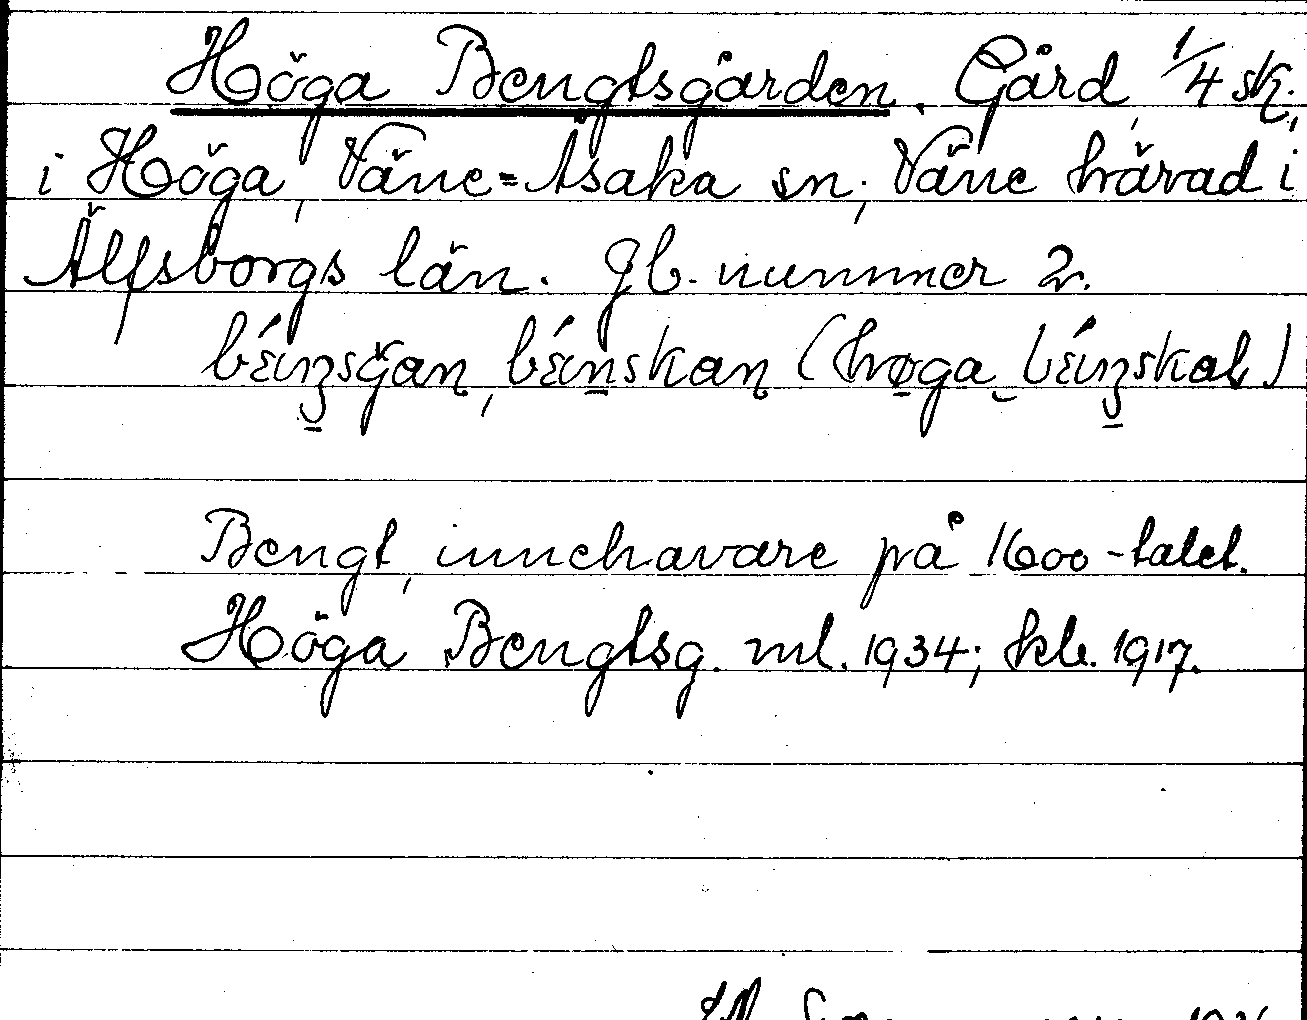 Höga Bengtsgården. Gård, 1/4 sk.,
i Höga, Väne-Åsaka sn; Väne härad i
Älfsborgs län. Jb. nummer 2.
(høga
Bengt, innehavare på 1600-talet.
Höga Bengtsg. ml. 1934; kb. 1917.